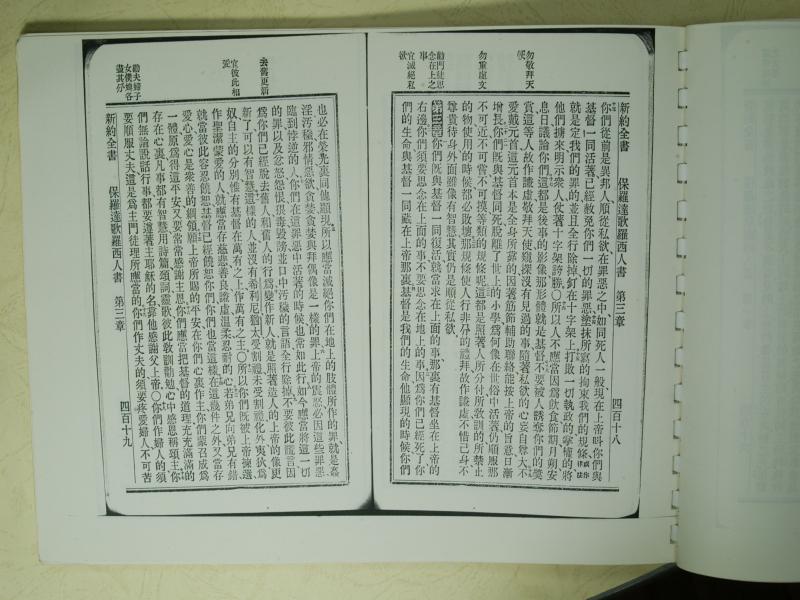 勿敬拜天使
勿重虛文
勸門徒思念在上之事
宜滅絕私欲
新約全書 保羅達歌羅西人書 第三章 四百十八
你們從前是異邦人順從私欲在罪惡之中如同死人一般現在上帝叫你們與
基督一同活著已經赦免你們一切的罪惡塗抹所拘束我們的規條
就是定我們的罪的並且全行除掉釘在十字架上打敗一切執政的掌權的將
他們擄來明示衆人仗著十字架誇勝〇所以人不應當因爲飲食節期月朔安
息日議論你們這都是後事的影像那形體就是基督不要被人誘奪你們的獎
賞這等人故作謙虛敬拜天使窺探沒有見過的事隨著私欲的心妄自尊大不
愛戴元首這元首本是全身所靠的因著筋節輔助聯絡能按上帝的旨意日漸
增長你們旣與基督同死脫離了世上的小學爲何像在世俗中活著仍順服那
不可近不可嘗不可摸等類的規條呢這都是照著人所分付所敎訓的所禁止
的物使用的時候都必敗壞那規條使人行非分的禮拜故作謙虛不惜己身不
尊貴待身外面雖像有智慧其實仍是順從私欲
第三章 你們旣與基督一同復活就當求在上面的事那裏有基督坐在上帝的
右邊你們須要思念在上面的事不要思念在地上的事因爲你們已經死了你
們的生命與基督一同藏在上帝那裏基督是我們的生命他顯現的時候你們
去舊更新
宜彼此相愛
勸夫婦子女僕婢各盡其分
也必在榮光裏同他顯現所以應當滅絕你們在地上的肢體所作的罪就是姦
淫汚穢邪情惡欲貪婪貪婪與拜偶像是一樣的罪上帝的震怒必因這些罪惡
臨到悖逆的人你們在這罪惡中活著的時候也常如此行如今應當將這一切
的罪以及忿怒怨恨狠毒毀謗並口中汚穢的言語全行除掉不要彼此謊言因
爲你們已經脫去舊人和舊人的行爲變作新人就是照著造人的上帝的像更
新了可以有智慧這樣的人並沒有希利尼猶太受割禮未受割禮化外夷狄爲
奴自主的分別惟有基督在萬有之上作萬有之主〇所以你們旣被上帝揀選
作聖潔蒙愛的人就應當存慈悲善良謙虛溫柔忍耐的心若弟兄向弟兄有錯
就當彼此容忍饒恕基督已經饒恕你們你們也當這樣在這幾件之外又當存
愛心愛心是衆善的綱領願上帝所賜的平安在你們心裏作主你們蒙召成爲
一體原爲得這平安又要常常感謝主恩你們應當把基督的道理充充滿滿的
存在心裏凡事都有智慧用詩篇頌詞靈歌彼此敎訓勸勉心中感恩稱頌主你
們無論說話行事都要遵著主耶穌的名靠他感謝父上帝〇你們作婦人的須
要順服丈夫這是爲主門徒理所應當的你們作丈夫的須要疼愛婦人不可苦
新約全書 保羅達歌羅西人書 第三章 四百十九